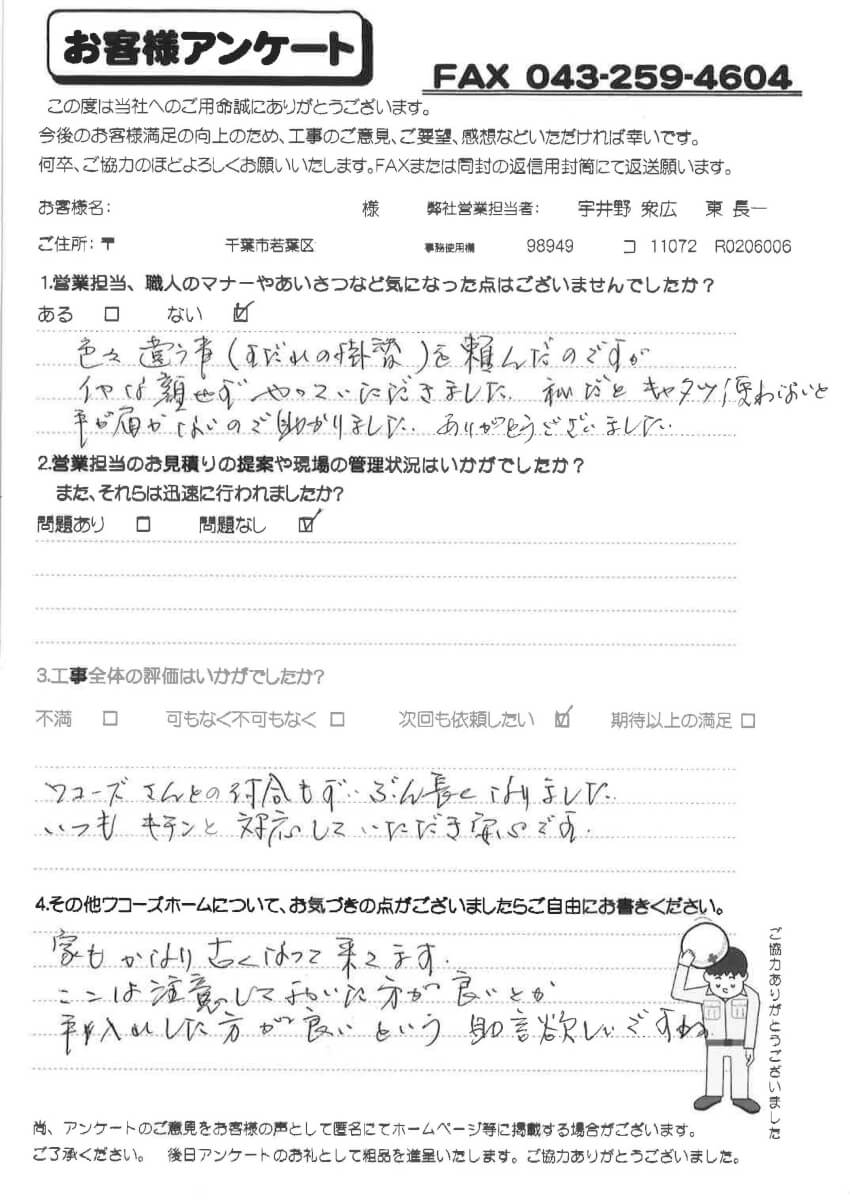 お客様アンケート
FAX 043-259-4604
この度は当社へのご用命誠にありがとうございます。
今後のお客様満足の向上のため、工事のご意見、ご要望、感想などいただければ幸いです。
何卒、ご協力のほどよろしくお願いいたします。FAXまたは同封の返信用封筒にて返送願います。
お客様名: 様 弊社営業担当者: 宇井野 衆広 東 長一
ご住所:〒 千葉市若葉区 事務使用欄 98949 コ 11072 R0206006
1.営業担当、職人のマナーやあいさつなど気になった点はございませんでしたか?
ある □ ない ☑
色々違う事(すだれの掛替)を頼んだのですが
イヤな顔せずやっていただきました。私だとキャタツ使わないと
手が届かないので助かりました。ありがとうございました。
2.営業担当のお見積りの提案や現場の管理状況はいかがでしたか?
また、それらは迅速に行われましたか?
問題あり □ 問題なし ☑
3.工事全体の評価はいかがでしたか?
不満 □ 可もなく不可もなく □ 次回も依頼したい ☑ 期待以上の満足 □
ワコーズさんとの付合もずいぶん長くなりました。
いつもキチンと対応していただき安心です。
4.その他ワコーズホームについて、お気づきの点がございましたらご自由にお書きください。
家もかなり古くなって来てます。
ここは注意しておいた方が良いとか
手入れした方が良いという助言欲しいですね。
ご協力ありがとうございました
尚、アンケートのご意見をお客様の声として匿名にてホームページ等に掲載する場合がございます。
ご了承ください。 後日アンケートのお礼として粗品を進呈いたします。ご協力ありがとうございました。